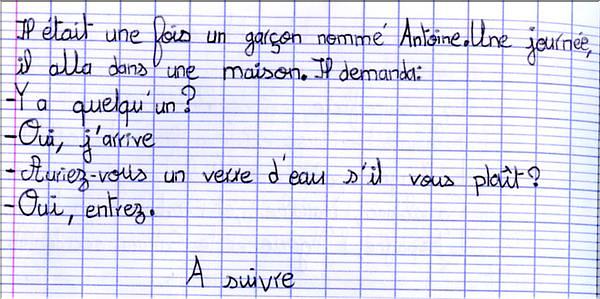 Il était une fois un garçon nommé Antoine. Une journée,
il alla dans une maison. Il demanda:
-Y a quelqu'un?
-Oui, j'arrive
-Auriez-vous un verre d'eau s'il vous plaît?
-Oui, entrez.
A suivre